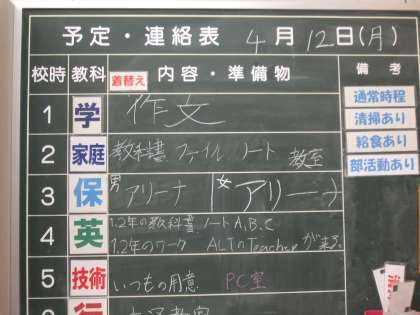 予定・連絡表 4月12日(月)
校時 教科 着替え 内容・準備物 備考
1 学 作文
通常時程
清掃あり
給食あり
部活動あり
2 家庭 教科書 ファイル ノート 教室
3 保 男 アリーナ 女 アリーナ
4 英 1.2年の教科書 ノートA,B,C
1.2年のワーク ALTのTeacherが来る
5 技術 いつもの用意 PC室
行